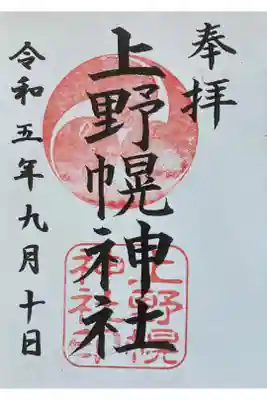 奉拝
上野幌神社
令和五年九月十日
上野幌
神社印